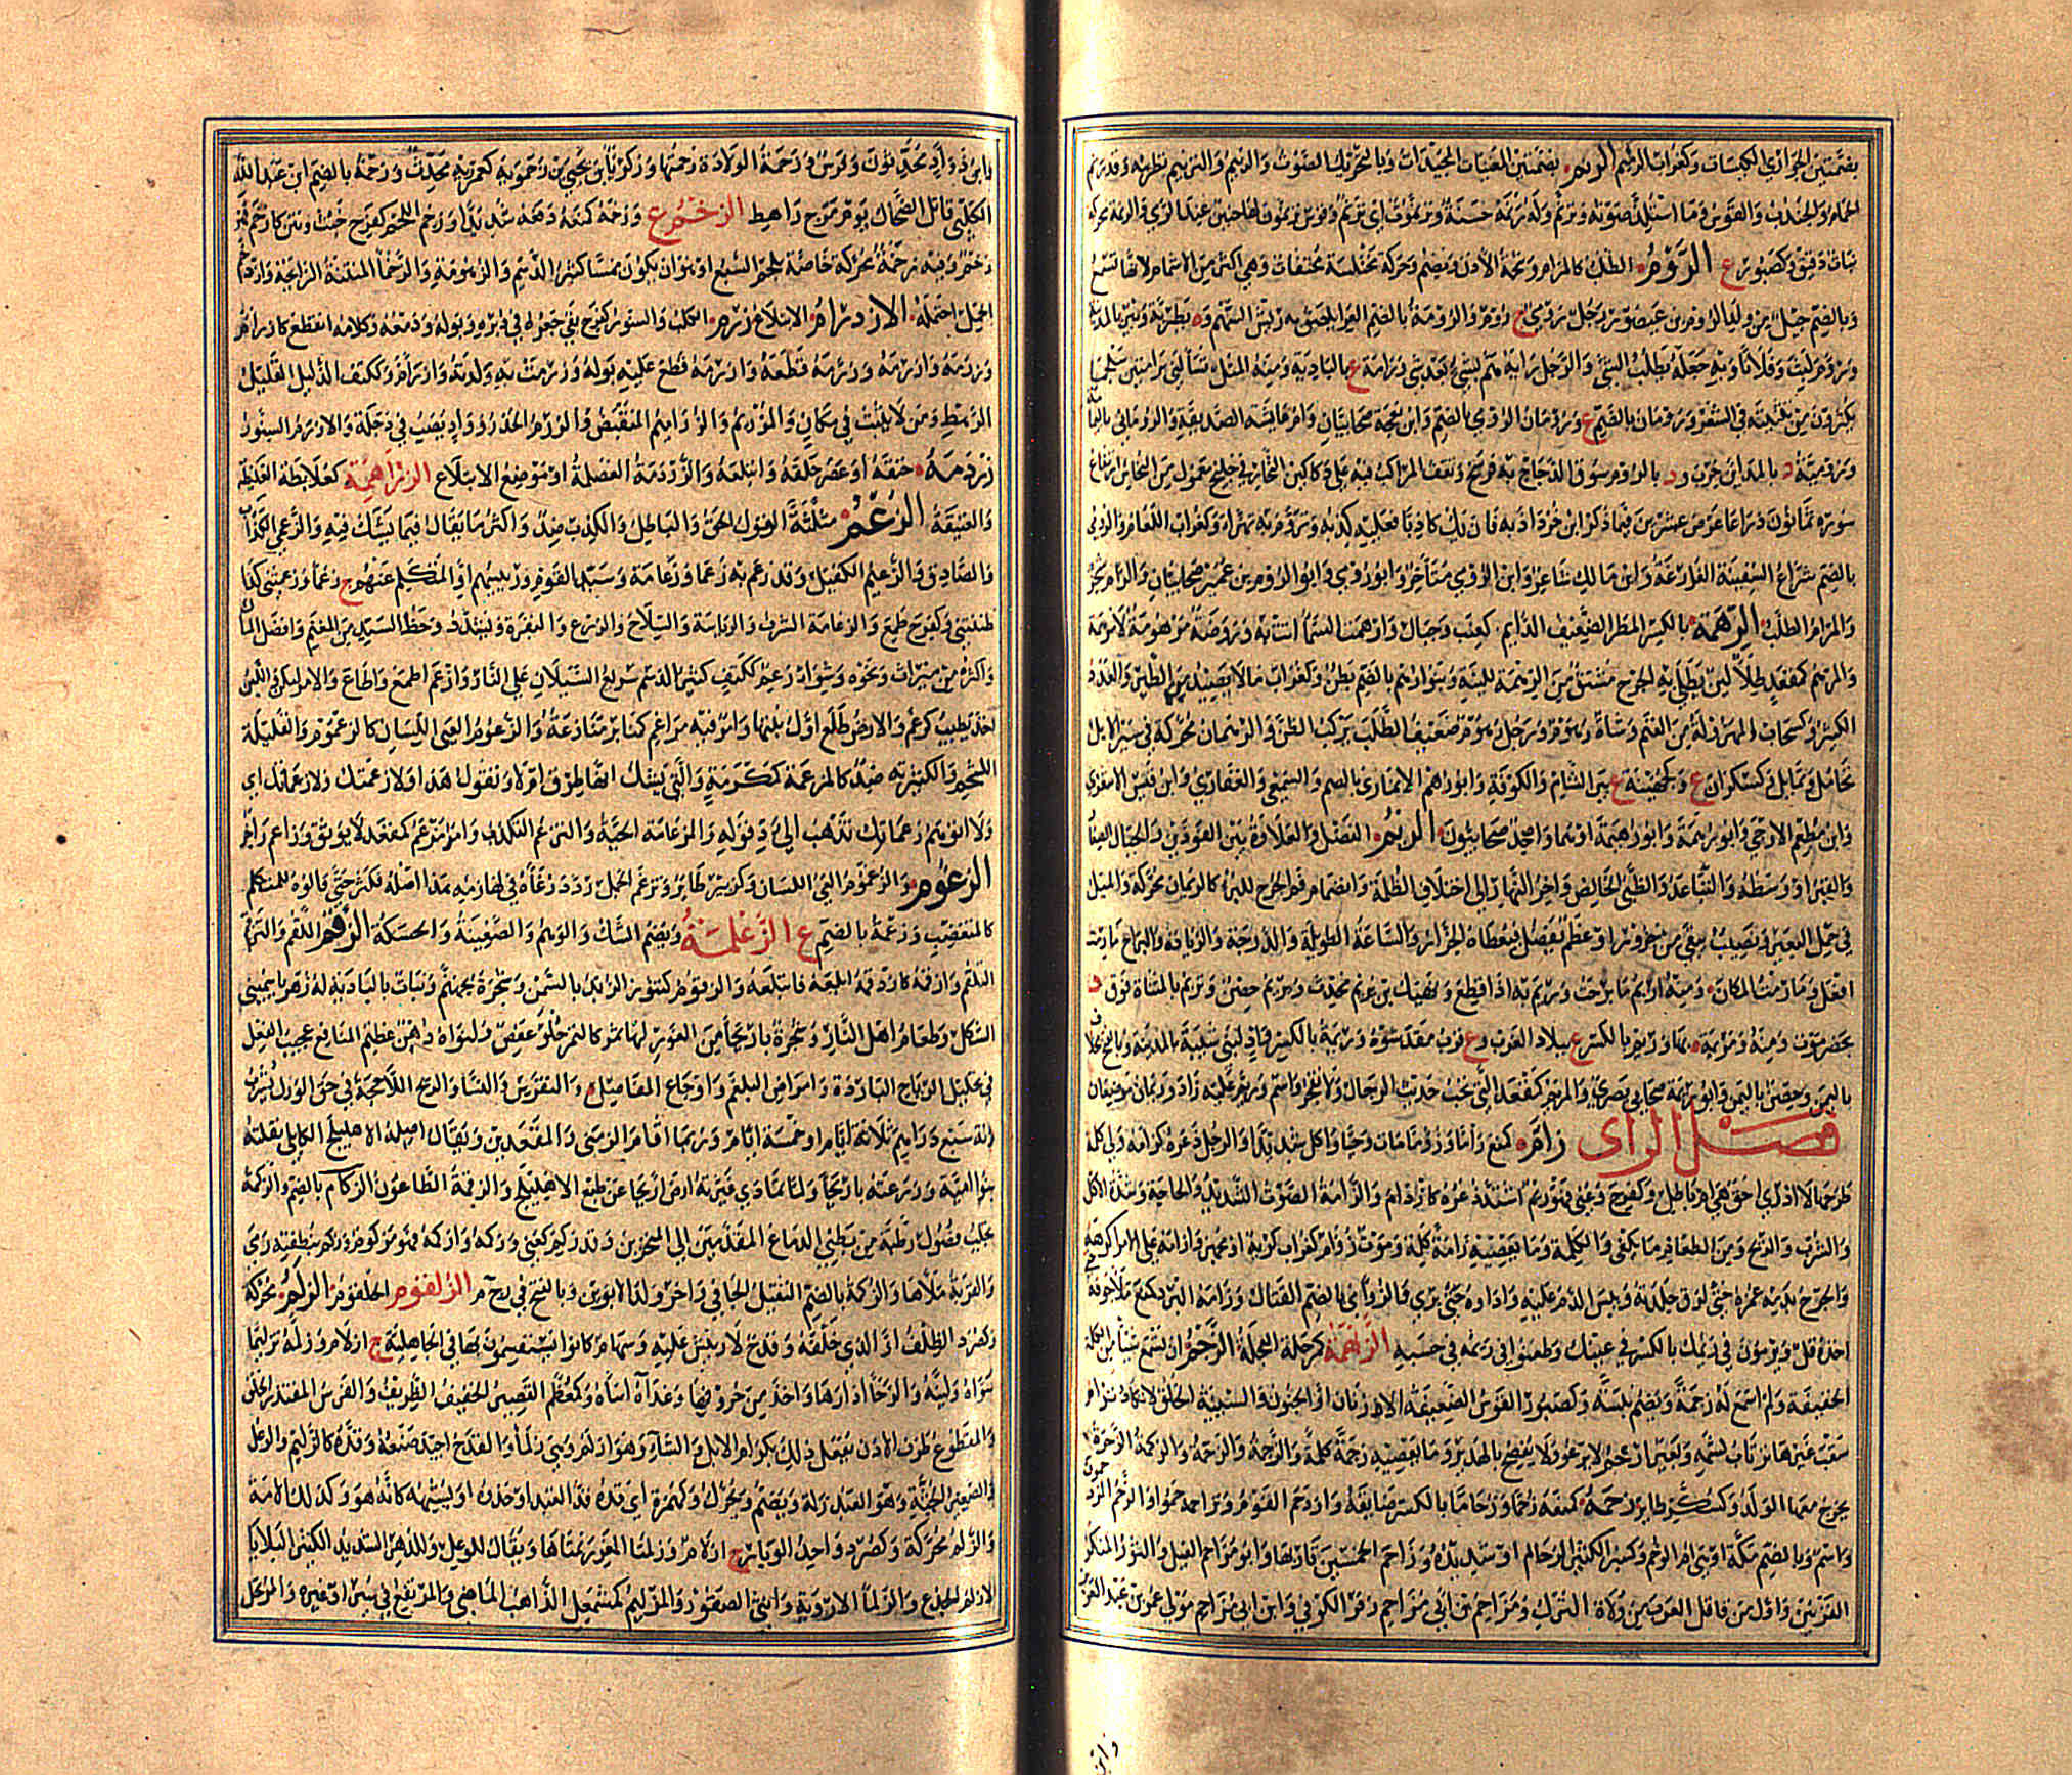 بضمتين الجواري الكيسات وكغراب الرثيم الرنم بضمتين المغنيات المجيدات وبالتحريك الصوت والرنيم والترنيم تطريبه وقد رنم
الحمام والجندب والقوس وما استلذ صوته وترنم وله رنمة حسنة وترنموت اي ترنم وقوس ترنموت لها حنين عند الرمي والرنمة محركة
نبات دقيق وكصبور ع الروم الطلب كالمرام وشحمة الأذن ويضم وحركة مختلسة مختفاة وهي اكثر من الاشمام لانها تسمع
وبالضم جيل من ولد الروم بن عيصو رجل رومي ج روم والرومة بالضم الغراء يلصق به ريش السهم وة بطبرية وبئر بالمدينة
وروم لبث وفلانا وبه جعله يطلب الشيء والرجل رايه هم بشيء بعد شيء ورامة ع بالبادية ومنه المثل تسألني برامتين سلجما
يكثرون من تثنيته في الشعر ورومان بالضم ع ورومان الرومي بالضم وابن نعجة صحابيان وام رومان عائشة الصديقة والروماني بالضم
ورومية د بالمداين خرب ود بالروم سوق الدجاج به فرسخ وتقف المراكب فيه على دكاكين التجار في خليج معمول من النحاس ارتفاع
سوره ثمانون ذراعا في عرض عشرين فيما ذكر ابن خرداذبه فان يك كاذبا فعليه كذبه وتروم به تهزأ وكغراب اللغام والرومي
بالضم شراع السفينة الفارغة وابن مالك شاعر وابن الرومي متأخر وابو رومي وابو الروم بن عمير صحابيان والرام شجر
والمرام الطلب الرهمة بالكسر المطر الضعيف الدائم كعنب وجبال وارهمت السماء اتت به وروضة مرهومة لا مرهمة
والمرهم كمقعد طلاء لين يطلى به الجرح مشتق من الرهمة للينه وبنو رهم بالضم بطن وكغراب ما لا يصيد من الطير والعدد
الكثير وكسحاب المهزولة من الغنم وشاة رهوم ورجل رهوم ضعيف الطلب يركب الظن والرهمان محركة في سير الابل
تحامل وتمايل وكسكران ع وكجهينة ع بين الشام والكوفة وابو رهم الانماري بالضم والسمعي والغفاري وابن قيس الاشعري
وابن مطعم الارحبي وابو ريمة وابو رهيمة او هما واحد صحابيون الريم الفضل والعلاوة بين الفودين والجبال الصغار
والقبر او وسطه والتباعد والظبي الخالص واخر النهار الى اختلاف الظلمة وانضمام فم الجرح للبرء كالريمان محركة والميل
في حمل البعير ونصيب يبقى من جزور او عظم يفضل فيعطاه الجزار والساعة الطويلة والدرجة والزيادة والبراح ما رمت
افعل وما رمت المكان ومنه اريم ما برحت وريم به اذا قطع ونهيك بن يريم محدث ويريم حصن وتريم بالمثناة فوق د
بحضرموت ومنه ومريمة بها وريم بالكسر ع ببلاد العرب وع قرب مقدشوه وريمة بالكسر واد لبني شيبة بالمدينة وبالفتح مخلاف
باليمن وحصن باليمن وابو ريمة صحابي بصري والمريم كمقعد التي تحب حديث الرجال ولا تفجر واسم وريم عليه زاد وريمان موضعان
فصل الزاي زأم كمنع زأما وزؤاما مات وحيا واكل شديدا والرجل ذعره كزأمه ولي كلمة
طرحها لا ادري احق هي ام باطل وكفرح وعني فهو زئم اشتد ذعره كازدأم والزأمة الصوت الشديد والحاجة وشدة الاكل
والشرب والريح ومن الطعام ما يكفي والكلمة وما يعصيه زأمة كلمة وموت زؤام كغراب كريه او مجهز وازأمه على الامر اكرهه
والجرح بدمه غمزه حتى لزق جلده ويبس الدم عليه واداره حتى برئ والزؤامي بالضم القتال وزأمه البرد كمنع ملأ جوفه
اخذه قل ويزمون في زئمك بالكسر في عينك وطعنوا في زئمه في حسبه الزأمة كرحلة العجلة الزجم ان تسمع شيئا من الكلمة
الخفيفة ولم اسمع له زجمة ويضم نبسة وكصبور القوس الضعيفة الارنان او الحنون والسيئة الخلق لا تكاد ترأم
سقب غيرها ترتاب بشمه وبعير ازجم لا يرغو ولا يفصح بالهدير وما يعصيه زجمة كلمة والزجمة والزحمة والزكمة الزحرة
يخرج معها الولد وكسكر طائر زحمه كمنعه زحما وزحاما بالكسر ضايقه وازدحم القوم وتزاحموا والزحم المزدحمون
واسم وبالضم مكة او هي ام الرحم وكمنبر الكثير الزحام او شديده وزاحم الخمسين قاربها وابو مزاحم الفيل والثور المنكسر
القرنين واول من قاتل العرب من ولاة الترك ومزاحم بن ابي مزاحم زفر الكوفي وابن ابي مزاحم مولى عمر بن عبد العزيز
وابن
وابن ذواد محدثون وفرس وزحمة الولادة زحمتها وزكريا بن يحيى بن زحمويه كعمرويه محدث وزحمة بالضم ابن عبد الله
الكلبي قاتل الضحاك يوم مرج راهط الزخم ع وزخمه كمنعه دفعه شديدا وزخم اللحم كفرح خبث ونتن كازخم فهو
زخم وفيه زخمة محركة خاصة بلحم السبع او هو ان يكون نمسا كثير الدسم والزهومة والزخماء المنتنة الرائحة وازدخم
الحمل احتمله الازدرام الابتلاع زرم الكلب والسنور كفرح بقي جعره في دبره وبوله ودمعه وكلامه انقطع كازرأم
وزرمه وازرمه وزرمه قطعه وازرمه قطع عليه بوله وزرمت به ولدته وازرأم وككتف الذليل القليل
الرهط ومن لا يثبت في مكان والمزرئم والزرأميم المنقبض والزرم الحذر وواد يصب في دجلة والازرم السنور
زردمه خنقه او عصر حلقه وابتلعه والزردمة الغلصمة او موضع الابتلاع الزراهمة كعلابطة الغليظة
والعتيقة الزعم مثلثة القول الحق والباطل والكذب ضد واكثر ما يقال فيما يشك فيه والزعمي الكذاب
والصادق والزعيم الكفيل وقد زعم به زعما وزعامة وسيد القوم ورئيسهم او المتكلم عنهم ج زعماء وزعمتني كذا
ظننتني وكفرح طمع والزعامة الشرف والرئاسة والسلاح والدرع والبقرة ويشدد وحظ السيد من المغنم وافضل المال
واكثره من ميراث ونحوه وشواء زعم ككتف كثير الدسم سريع السيلان على النار وازعم اطمع واطاع والامر امكن واللبن
اخذ يطيب كزعم والارض طلع اول نبتها وامر فيه مزاعم كمنابر منازعة والزعوم العيي اللسان كالزعموم والقليلة
الشحم والكثيرته ضد كالمزعمة كمكرمة والتي يشك ابها طرق ام لا وتقول هذا ولا زعمتك ولا زعماتك اي
ولا اتوهم زعماتك تذهب الى رد قوله والزعامة الحية والتزعم التكذب وامر مزعم كمقعد لا يوثق وزاعم زاحم
الزغوم والزغموم العيي اللسان وكزبير طائر وتزغم الجمل ردد رغاءه في لهازمه هذا اصله فكثر حتى قالوه للمتكلم
كالمتغضب وزغمة بالضم ع الزغلمة ويضم الشك والوهم والضغينة والحسكة الزقم اللقم والتزقم
التلقم وازقمه كازدقمه ابلعه فابتلعه والزقوم كتنور الزبد بالتمر وشجرة بجهنم ونبات بالبادية له زهر ياسميني
الشكل وطعام اهل النار وشجرة باريحاء من الغور لها ثمر كالتمر حلو عفص ولنواه دهن عظيم المنافع عجيب الفعل
في تحليل الرياح الباردة وامراض البلغم واوجاع المفاصل والنقرس والنسا والريح اللاحجة في حق الورك يشرب
منه سبعة دراهم ثلاثة ايام او خمسة ايام وربما اقام الزمنى والمقعدين ويقال اصله الاهليلج الكابلي نقلته
بنو امية وزرعته باريحاء ولما تمادى غيرته ارض اريحا عن طبع الاهليلج والزقمة الطاعون الزكام بالضم والزكمة
تحلب فضول رطبة من بطني الدماغ المقدمين الى المنخرين وقد زكم كعني وزكمه وازكمه فهو مزكوم وزكم بنطفته رمى
والقربة ملأها والزكمة بالضم الثقيل الجافي واخر ولد الابوين وبالفتح في زجم الزلقوم الحلقوم الزلم محركة
وكصرد الظلف او الذي خلفه وقدح لا ريش عليه وسهام كانوا يستقسمون بها في الجاهلية ج ازلام وزلمه تزليما
سواه ولينه والرحا ادارها واخذ من حروفها وغذاءه اساءه وكمعظم القصير الخفيف الظريف والفرس المقتدر الخلق
والمقطوع طرف الاذن يفعل ذلك بكرام الابل والشاء وهو ازلم وهي زلماء والقدح اجيد صنعه وقده كالزليم والوعل
والصغير الجثة وهو العبد زلمة ويضم ويحرك وكهمزة اي قده قد العبد او حذوه او يشبهه كانه هو وكذلك الامة
والزلم محركة وكصرد واحد الوبار ج ازلام وزلمتا العنز زنمتاها ويقال للوعل وللدهر الشديد الكثير البلايا
الازلم الجذع والزلماء الاروية وانثى الصقور والمزلئم كمشمعل الذاهب الماضي والمرتفع في سير او غيره والمرتحل